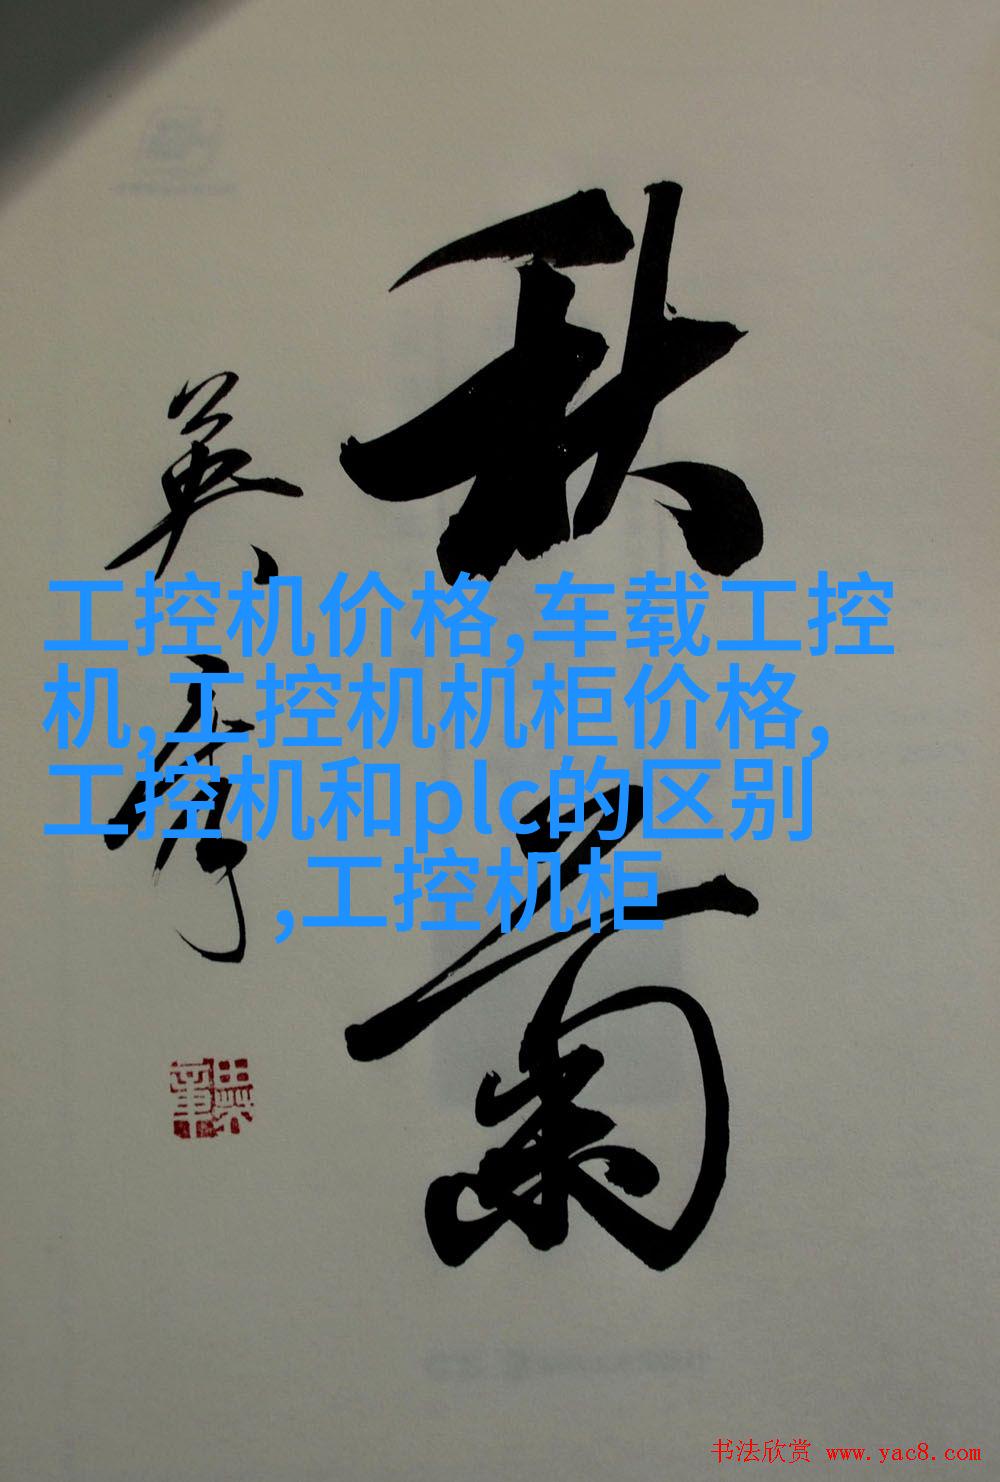 秋菊
英彦
工控机价格,车载工控
机,工控机机柜价格,
工控机和plc的区别
,工控机柜
书法欣赏 www.yac8.com